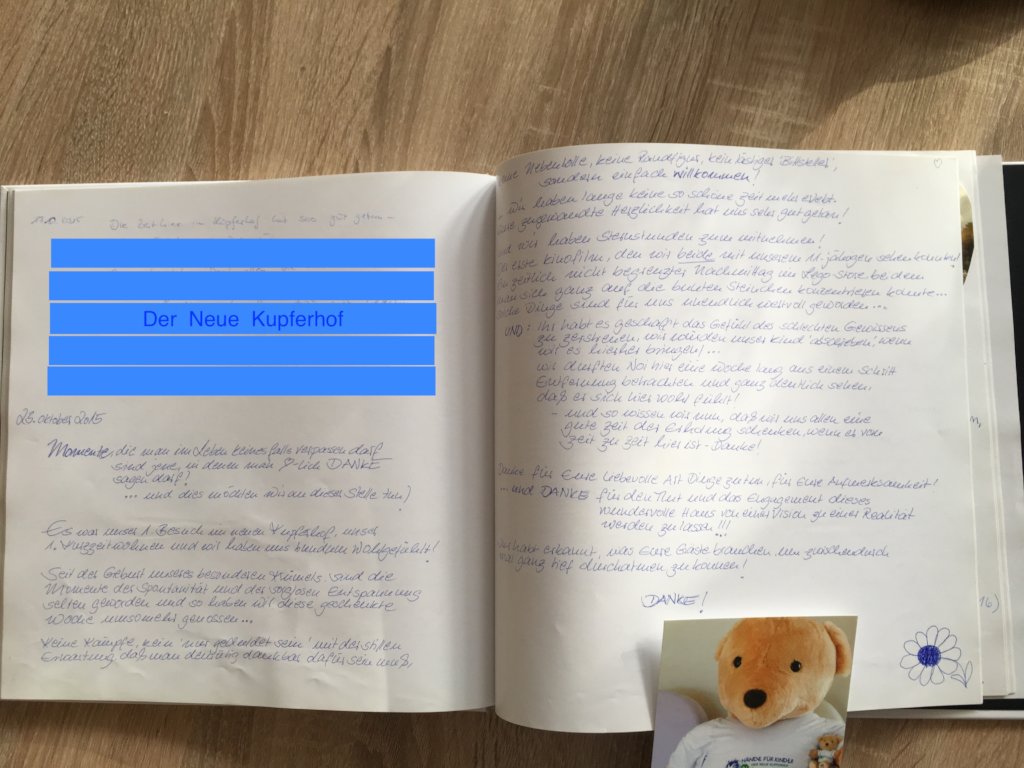 Die Zeit hier im Kupferhof hat sehr gut getan -
Der Neue Kupferhof
28. Oktober 2015
Momente, die man im Leben keinesfalls verpassen darf
sind jene, in denen man ♡-lich DANKE
sagen darf!
... und dies möchten wir an dieser Stelle tun!)
Es war unser 1. Besuch im neuen Kupferhof, unser
1. Kurzzeitwohnen und wir haben uns rundum wohlgefühlt!
Seit der Geburt unseres besonderen sind die
Momente der Spontanität und der sorglosen Entspannung
selten geworden und so haben wir diese geschenkte
Woche umsomehr genossen...
Keine Kämpfe, kein 'nur geduldet sein' mit der stillen
Erwartung, daß man dankbar dafür sein muß,
keine Nebenrolle, keine Randfigur, kein lästiger 'Bittsteller',
sondern einfach willkommen!
- Wir haben lange keine so schöne Zeit mehr erlebt.
Eure zugewandte Herzlichkeit hat uns sehr gut getan!
Und wir haben Sternstunden zum mitnehmen!
Der erste Kinofilm, den wir beide mit unserem 11-jährigen sehen konnten!
Ein zeitlich nicht begrenzter Nachmittag im Lego-Store bei dem
man sich ganz auf die bunten Steinchen konzentrieren konnte...
solche Dinge sind für uns unendlich wertvoll geworden...
UND: Ihr habt es geschafft das Gefühl des schlechten Gewissens
zu zerstreuen, wir würden unser Kind 'abschieben', wenn
wir es hierher bringen!...
Wir durften hier eine Woche lang aus einem Schritt
Entfernung betrachten und ganz deutlich sehen,
daß er sich hier wohl fühlt!
- und so wissen wir nun, daß wir uns allen eine
gute Zeit der Erholung schenken, wenn er von
Zeit zu Zeit hier ist - Danke!
Danke für Eure liebevolle Art Dinge zu tun, für Eure Aufmerksamkeit!
... und DANKE für den Mut und das Engagement dieses
wundervolle Haus von einer Vision zu einer Realität
werden zu lassen!!!
Ihr habt erkannt, was Eure Gäste brauchen um zwischendurch
mal ganz tief durchatmen zu können!
DANKE!
16)
HÄNDE FÜR KINDER
DER NEUE KUPFERHOF